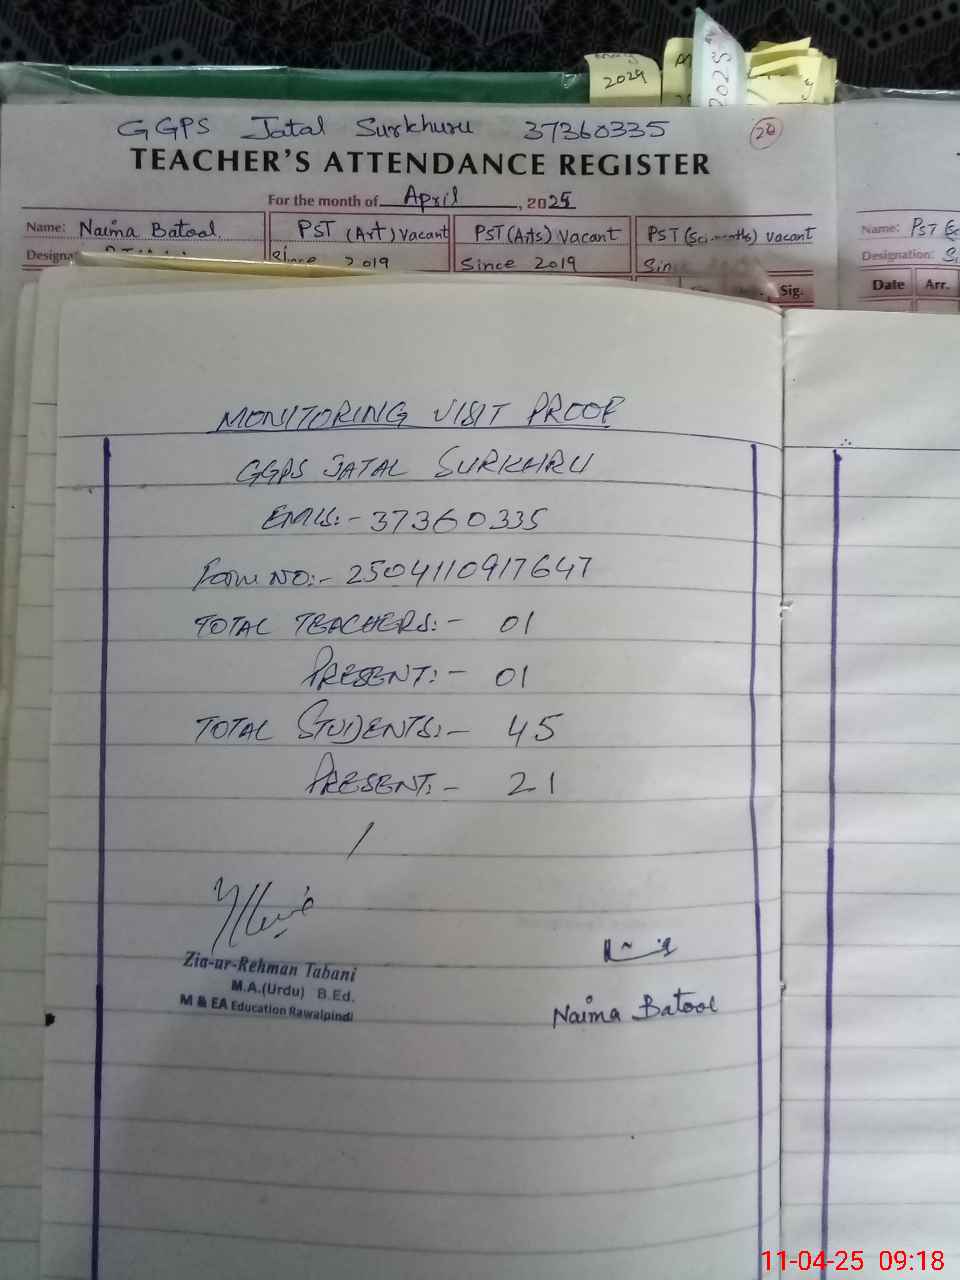 2024
2025
GGPS Jatal Surkhuru 37360335
20
TEACHER'S ATTENDANCE REGISTER
For the month of April, 2025
Name: Naima Batool PST (Art) Vacant PST (Arts) Vacant PST (Sci.maths) Vacant Name: PST
Since 2019 Since 2019 Designation:
Sig. Date Arr.
MONITORING VISIT PROOF
GGPS JATAL SURKHRU
EMIS:- 37360335
Form NO:- 2504110917647
TOTAL TEACHERS:- 01
PRESENT:- 01
TOTAL STUDENTS:- 45
PRESENT:- 21
Zia-ur-Rehman Tabani
M.A.(Urdu) B.Ed.
M & EA Education Rawalpindi
Naima Batool
11-04-25 09:18